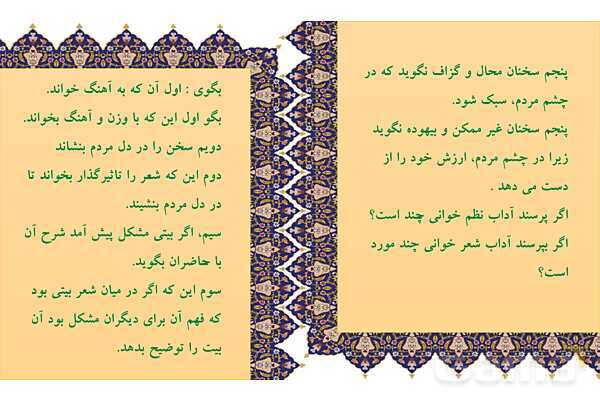 پنجم سخنان محال و گزاف نگوید که در
چشم مردم، سبک شود.
پنجم سخنان غیر ممکن و بیهوده نگوید
زیرا در چشم مردم، ارزش خود را از
دست می دهد .
اگر پرسند آداب نظم خوانی چند است؟
اگر بپرسند آداب شعر خوانی چند مورد
است؟
بگوی : اول آن که به آهنگ خواند.
بگو اول این که با وزن و آهنگ بخواند.
دویم سخن را در دل مردم بنشاند
دوم این که شعر را تاثیرگذار بخواند تا
در دل مردم بنشیند.
سیم، اگر بیتی مشکل پیش آمد شرح آن
با حاضران بگوید.
سوم این که اگر در میان شعر بیتی بود
که فهم آن برای دیگران مشکل بود آن
بیت را توضیح بدهد.